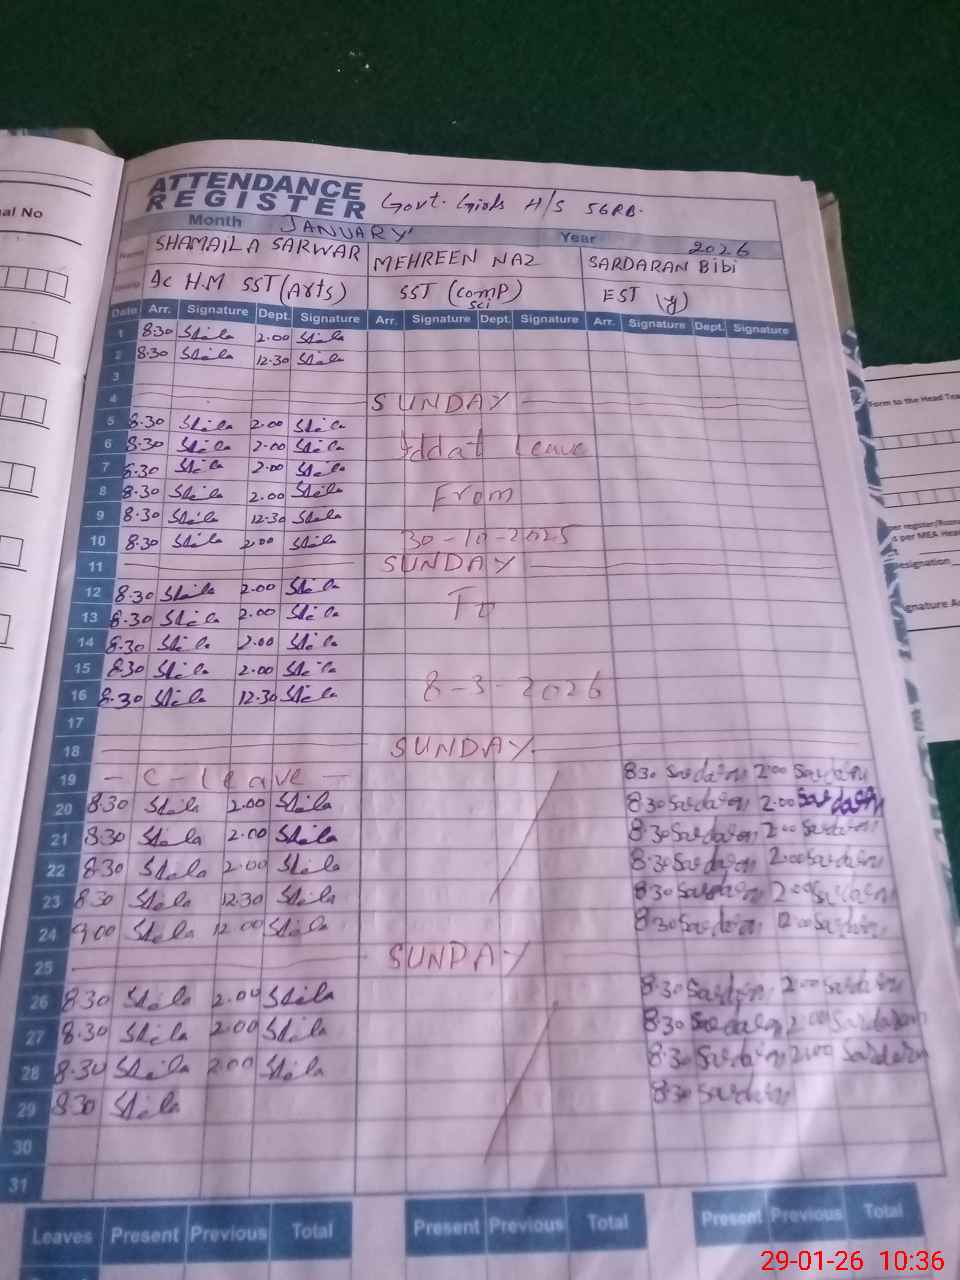 al No
ATTENDANCE REGISTER Govt. Girls H/S 56RB.
Month JANUARY Year 2026
Name SHAMAILA SARWAR MEHREEN NAZ SARDARAN BiBi
Ic H.M SST (Arts) SST (comP) EST (y)
Sci
Date Arr. Signature Dept. Signature Arr. Signature Dept. Signature Arr. Signature Dept. Signature
1 8:30 2.00
2 8:30 12.30
3
4 SUNDAY
5 8.30 2.00
6 8.30 2.00 Iddat Leave
7 8.30 2.00
8 8.30 2.00 From
9 8.30 12.30
10 8.30 2.00 30-10-2025
11 SUNDAY
12 8.30 2.00
13 8.30 2.00 To
14 8.30 2.00
15 8.30 2.00
16 8.30 12.30 8-3-2026
17
18 SUNDAY
19 - C - leave - 8.30 Sardaran 2.00 Sardaran
20 8.30 2.00 8.30 Sardaran 2.00 Sardaran
21 8.30 2.00 8.30 Sardaran 2.00 Sardaran
22 8.30 2.00 8.30 Sardaran 2.00 Sardaran
23 8.30 12.30 8.30 Sardaran 2.00 Sardaran
24 9.00 12.00 8.30 Sardaran 12.00 Sardaran
25 SUNDAY
26 8.30 2.00 8.30 Sardaran 2.00 Sardaran
27 8.30 2.00 8.30 Sardaran 2.00 Sardaran
28 8.30 2.00 8.30 Sardaran 2.00 Sardaran
29 8.30 8.30 Sardaran
30
31
Leaves Present Previous Total Present Previous Total Present Previous Total
Form to the Head Tea
er register/Room
s per MEA Hea
esignation
gnature A
29-01-26 10:36